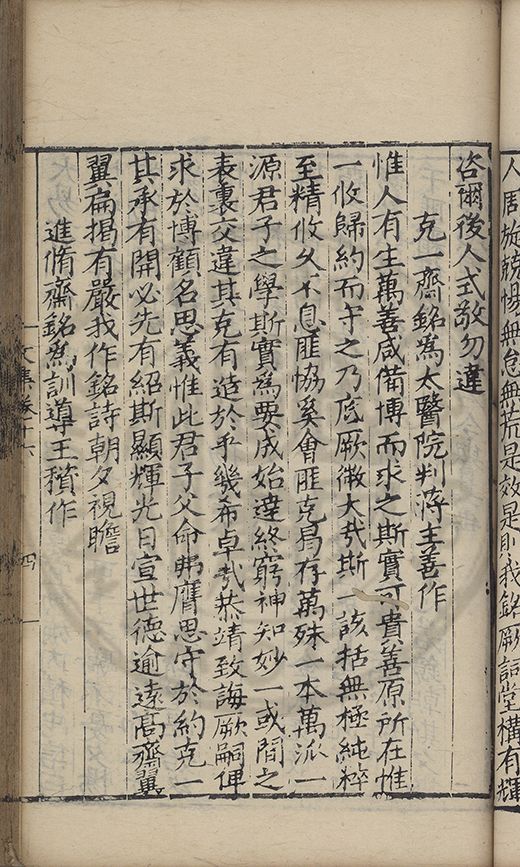 人居旋兢惕無怠無荒是效是則我銘厥詞堂構有輝
咨爾後人式敬勿違
克一齋銘為太醫院判蔣主善作
惟人有生萬善咸備博而求之斯實可貴善原所在惟
一攸歸約而守之乃底厥微大哉斯一該括無極純粹
至精攸久不息匪協奚會匪克曷存萬殊一本萬派一
源君子之學斯實為要成始達終窮神知妙一或間之
表裏交違其克有造於乎幾希卓哉恭靖致誨厥嗣俾
求於博顧名思義惟此君子父命弗膺思守於約克一
其承有開必先有紹斯顯輝光日宣世德逾遠髙齋翼
翼扁揭有嚴我作銘詩朝夕視瞻
進脩齋銘為訓導王積作
文集卷十六
四